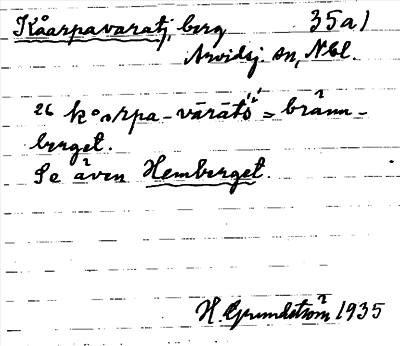 Kåarpavaratj, berg 35a1
Arvidsj. sn, Nbl.
26 koarpa-vārātś = bränn-
berget.
Se även Hemberget.
H. Grundström 1935